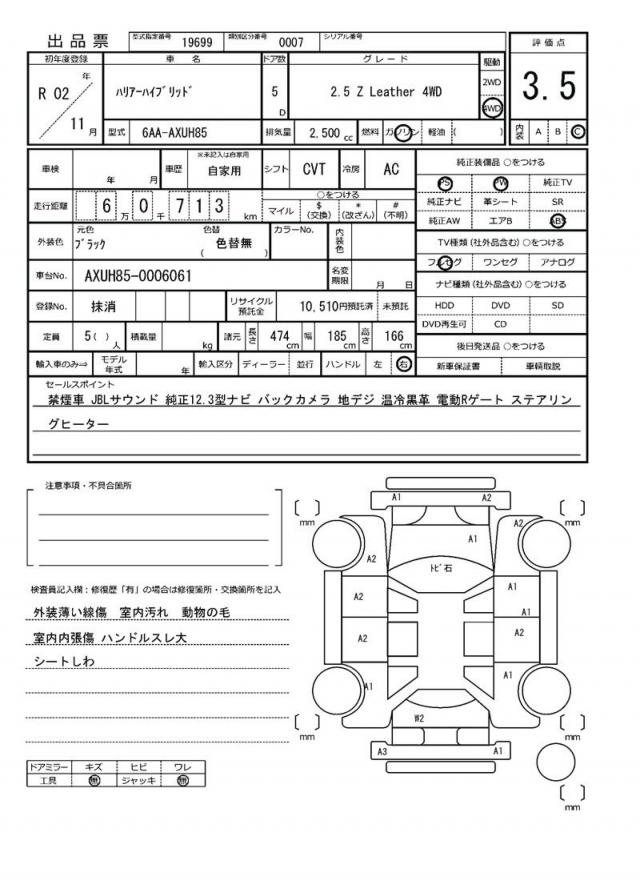 出品票 型式指定番号 19699 類別区分番号 0007 シリアル番号
初年度登録 車 名 ドア数 グレード 駆動 評価点
R 02 年 ハリアーハイブリッド 5 D 2.5 Z Leather 4WD 2WD 4WD 3.5
11 月 型式 6AA-AXUH85 排気量 2,500 cc 燃料 ガソリン 軽油 ( ) 内装 A B C
車検 年 月 車歴 ※未記入は自家用 自家用 シフト CVT 冷房 AC 純正装備品 ○をつける
PS PW 純正TV
走行距離 6 万 0 千 7 1 3 km ○をつける マイル $ (交換) * (改ざん) # (不明) 純正ナビ 革シート SR
純正AW エアB ABS
外装色 元色 ブラック 色替 ( 色替無 ) カラーNo. 内装色 TV種類 (社外品含む) ○をつける
フルセグ ワンセグ アナログ
車台No. AXUH85-0006061 名変期限 月 日 ナビ種類 (社外品含む) ○をつける
登録No. 抹消 リサイクル預託金 10,510円預託済 未預託 HDD DVD SD
DVD再生可 CD
定員 5 ( ) 人 積載量 kg 諸元 長さ 474 cm 幅 185 cm 高さ 166 cm 後日発送品 ○をつける
輸入車のみ⇒ モデル年式 年 輸入区分 ディーラー 並行 ハンドル 左 右 新車保証書 車輌取説
セールスポイント
禁煙車 JBLサウンド 純正12.3型ナビ バックカメラ 地デジ 温冷黒革 電動Rゲート ステアリン
グヒーター
注意事項・不具合箇所
検査員記入欄：修復歴「有」の場合は修復箇所・交換箇所を記入
外装薄い線傷 室内汚れ 動物の毛
室内内張傷 ハンドルスレ大
シートしわ
ドアミラー キズ ヒビ ワレ
工具 無 ジャッキ 無
A1 A2
[ ] mm [ ] mm
A2 A1 A2
トビ石
A2 A1
A1
A2 A2
A1 A1
W2
[ ] mm [ ] mm
A3 A1
[ ] mm